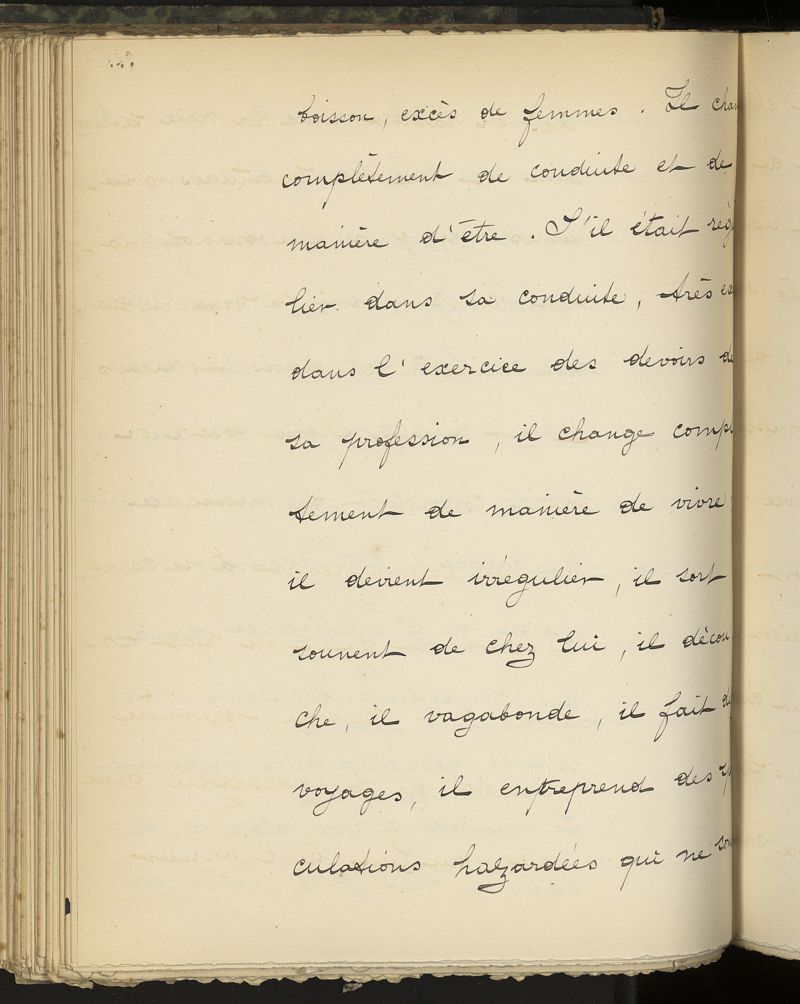 boisson, excès de femmes. Il chan
complètement de conduite et de
manière d'être. S'il était régu
lier dans sa conduite, très ex
dans l'exercice des devoirs de
sa profession, il change compl
tement de manière de vivre
il devient irrégulier, il sort
souvent de chez lui, il décou
che, il vagabonde, il fait de
voyages, il entreprend des sp
culations halzardées qui ne son